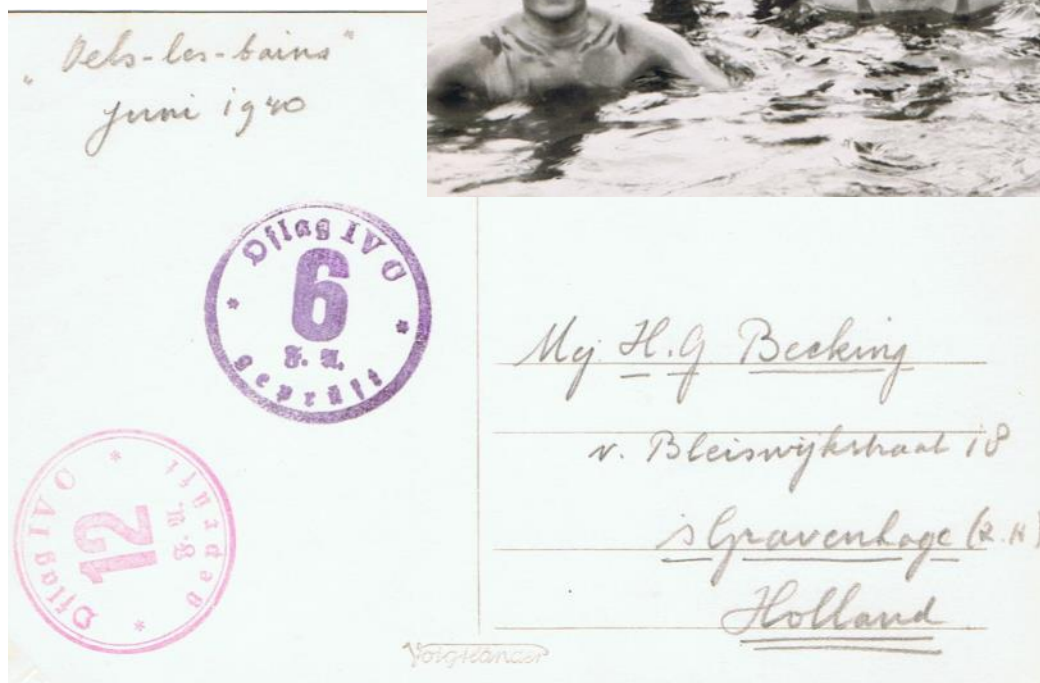 „Oels-les-bains"
juni 1940
Oflag IV C
6
F. A.
geprüft
Oflag IV C
12
F. A.
geprüft
Mej. H.G Becking
v. Bleiswijkstraat 18
s Gravenhage (Z.H)
Holland
Voigtländer